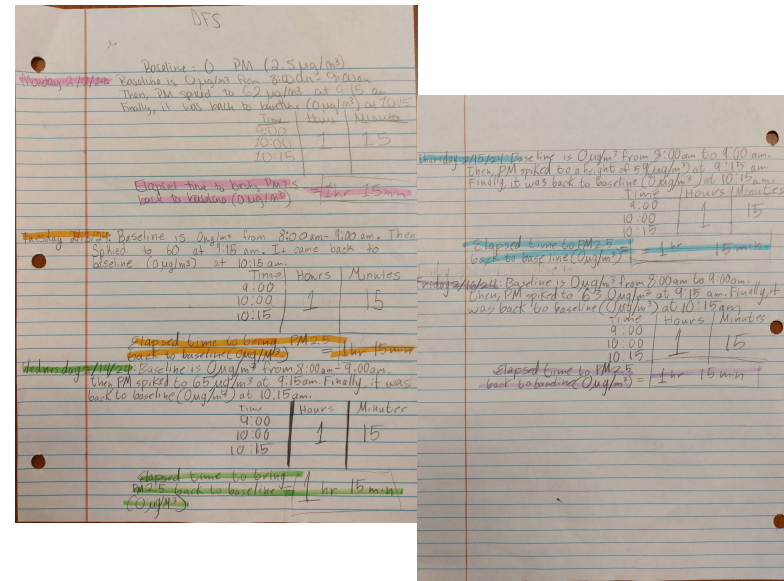 DFS
Baseline = 0 PM (2.5 µg/m³)
Monday Baseline is 0 µg/m³ from 8:00am - 9:00am
Then, PM spiked to 62 µg/m³ at 9:15 am
Finally, it was back to baseline (0 µg/m³) at 10:15
Time Hour Minutes
9:00
10:00 1 15
10:15
Elapsed time to bring PM
back to baseline (0 µg/m³) = 1 hr 15 min
Tuesday Baseline is 0 µg/m³ from 8:00 am - 9:00 am. Then
Spiked to 60 at 9:15 am. It came back to
baseline (0 µg/m³) at 10:15 am.
Time Hours Minutes
9:00
10:00 1 15
10:15
elapsed time to bring PM 2.5
back to baseline (0 µg/M³) = 1 hr 15 min
Wednesday 2/14/24: Baseline is 0 µg/m³ from 8:00am - 9:00am.
then PM spiked to 65 µg/m³ at 9:15am. Finally, it was
back to baseline (0 µg/m³) at 10:15am.
Time Hours Minutes
9:00
10:00 1 15
10:15
elapsed time to bring
PM 2.5 back to baseline = 1 hr 15 min
(0 µg/M³)
Thursday 2/15/24: Baseline is 0 µg/m³ from 8:00am to 9:00 am.
Then, PM spiked to a height of 59 µg/m³ at 9:15 am
Finally it was back to baseline (0 µg/m³) at 10:15 am.
Time Hours Minutes
9:00
10:00 1 15
10:15
Elapsed time to PM 2.5
back to baseline (0 µg/m³) = 1 hr 15 min
Friday 2/16/24: Baseline is 0 µg/m³ from 8:00am to 9:00am.
Then, PM spiked to 63 0 µg/m³ at 9:15 am. Finally, it
was back to baseline (0 µg/m³) at 10:15 am
Time Hours Minutes
9:00
10:00 1 15
10:15
Elapsed time to PM 2.5
back to baseline (0 µg/m³) = 1 hr 15 min